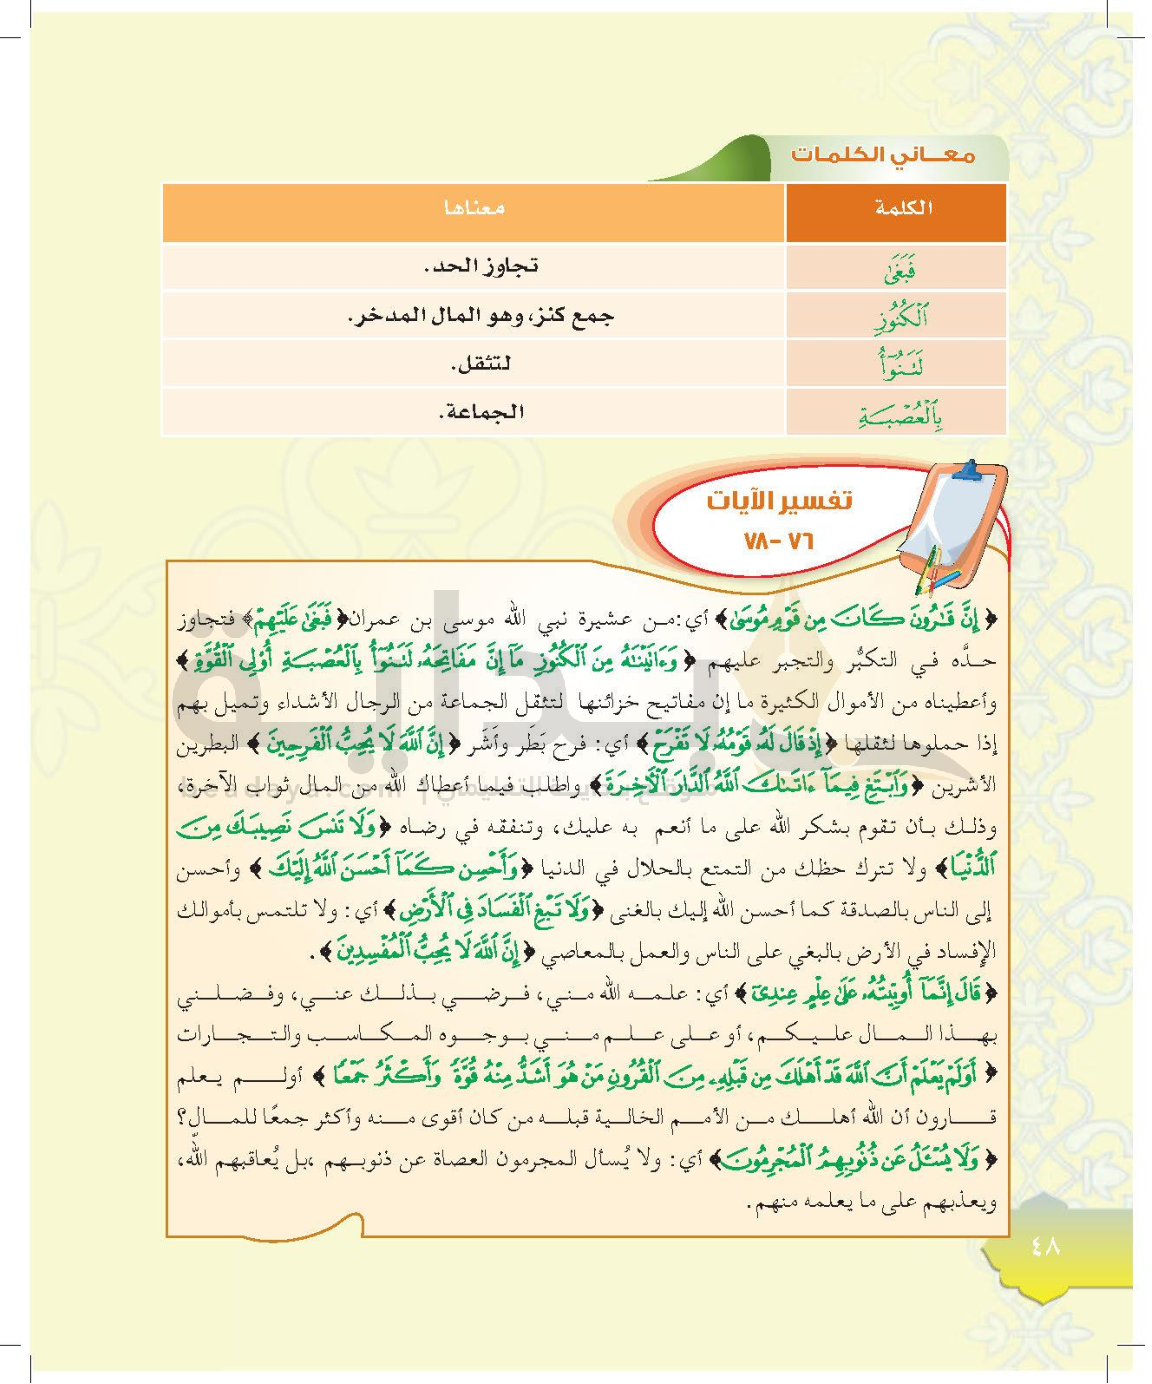 معـــاني الكلمـات
الكلمة
معناها
فَبَغَىٰ
تجاوز الحد.
ٱلْكُنُوزِ
جمع كنز، وهو المال المدخر.
لَتَنُوٓأُ
لتثقل.
بِٱلْعُصْبَةِ
الجماعة.
تفسير الآيات
٧٦ -٧٨
﴿ إِنَّ قَٰرُونَ كَانَ مِن قَوْمِ مُوسَىٰ﴾ أي:مـن عشيرة نبي الله موسى بن عمران﴿ فَبَغَىٰ عَلَيْهِمْ﴾ فتجاوز
حدَّه في التكبُّر والتجبر عليهم ﴿ وَءَاتَيْنَٰهُ مِنَ ٱلْكُنُوزِ مَآ إِنَّ مَفَاتِحَهُۥ لَتَنُوٓأُ بِٱلْعُصْبَةِ أُوْلِى ٱلْقُوَّةِ ﴾
وأعطيناه من الأموال الكثيرة ما إن مفاتيح خزائنها لتثقل الجماعة من الرجال الأشداء وتميل بهم
إذا حملوها لثقلها ﴿إِذْ قَالَ لَهُۥ قَوْمُهُۥ لَا تَفْرَحْ ﴾ أي: فرح بَطَر وأَشَر ﴿ إِنَّ ٱللَّهَ لَا يُحِبُّ ٱلْفَرِحِينَ ﴾ البطرين
الأشرين ﴿وَٱبْتَغِ فِيمَآ ءَاتَىٰكَ ٱللَّهُ ٱلدَّارَ ٱلْأَخِرَةَ﴾ واطلب فيما أعطاك الله من المال ثواب الآخرة،
وذلك بـأن تقوم بشكر الله على ما أنعم به عليك، وتنفقه في رضاه ﴿وَلَا تَنسَ نَصِيبَكَ مِنَ
ٱلدُّنْيَا﴾ ولا تترك حظك من التمتع بالحلال في الدنيا ﴿وَأَحْسِن كَمَآ أَحْسَنَ ٱللَّهُ إِلَيْكَ ﴾ وأحسن
إلى الناس بالصدقة كما أحسن الله إليك بالغنى ﴿وَلَا تَبْغِ ٱلْفَسَادَ فِى ٱلْأَرْضِ﴾ أي: ولا تلتمس بأموالك
الإفساد في الأرض بالبغي على الناس والعمل بالمعاصي ﴿إِنَّ ٱللَّهَ لَا يُحِبُّ ٱلْمُفْسِدِينَ﴾.
﴿ قَالَ إِنَّمَآ أُوتِيتُهُۥ عَلَىٰ عِلْمٍ عِندِىٓ ﴾ أي: علمـه الله منـي، فـرضـي بـذلـك عنـي، وفـضلـني
بهـذا المـال عليـكـم، أو علـى علـم منـي بـوجـوه المـكـاسـب والتـجـارات
﴿ أَوَلَمْ يَعْلَمْ أَنَّ ٱللَّهَ قَدْ أَهْلَكَ مِن قَبْلِهِۦ مِنَ ٱلْقُرُونِ مَنْ هُوَ أَشَدُّ مِنْهُ قُوَّةً وَأَكْثَرُ جَمْعًا ﴾ أولـم يعلم
قـارون أن الله أهلـك مـن الأمـم الخاليـة قبلـه من كان أقوى منـه وأكثر جمعًا للمـال؟
﴿ وَلَا يُسْـَٔلُ عَن ذُنُوبِهِمُ ٱلْمُجْرِمُونَ﴾ أي: ولا يُسأل المجرمون العصاة عن ذنوبـهم ،بل يُعاقبهم الله،
ويعذبهم على ما يعلمه منهم.
بداية
beadaya.com | موقع بداية التعليمي
٤٨